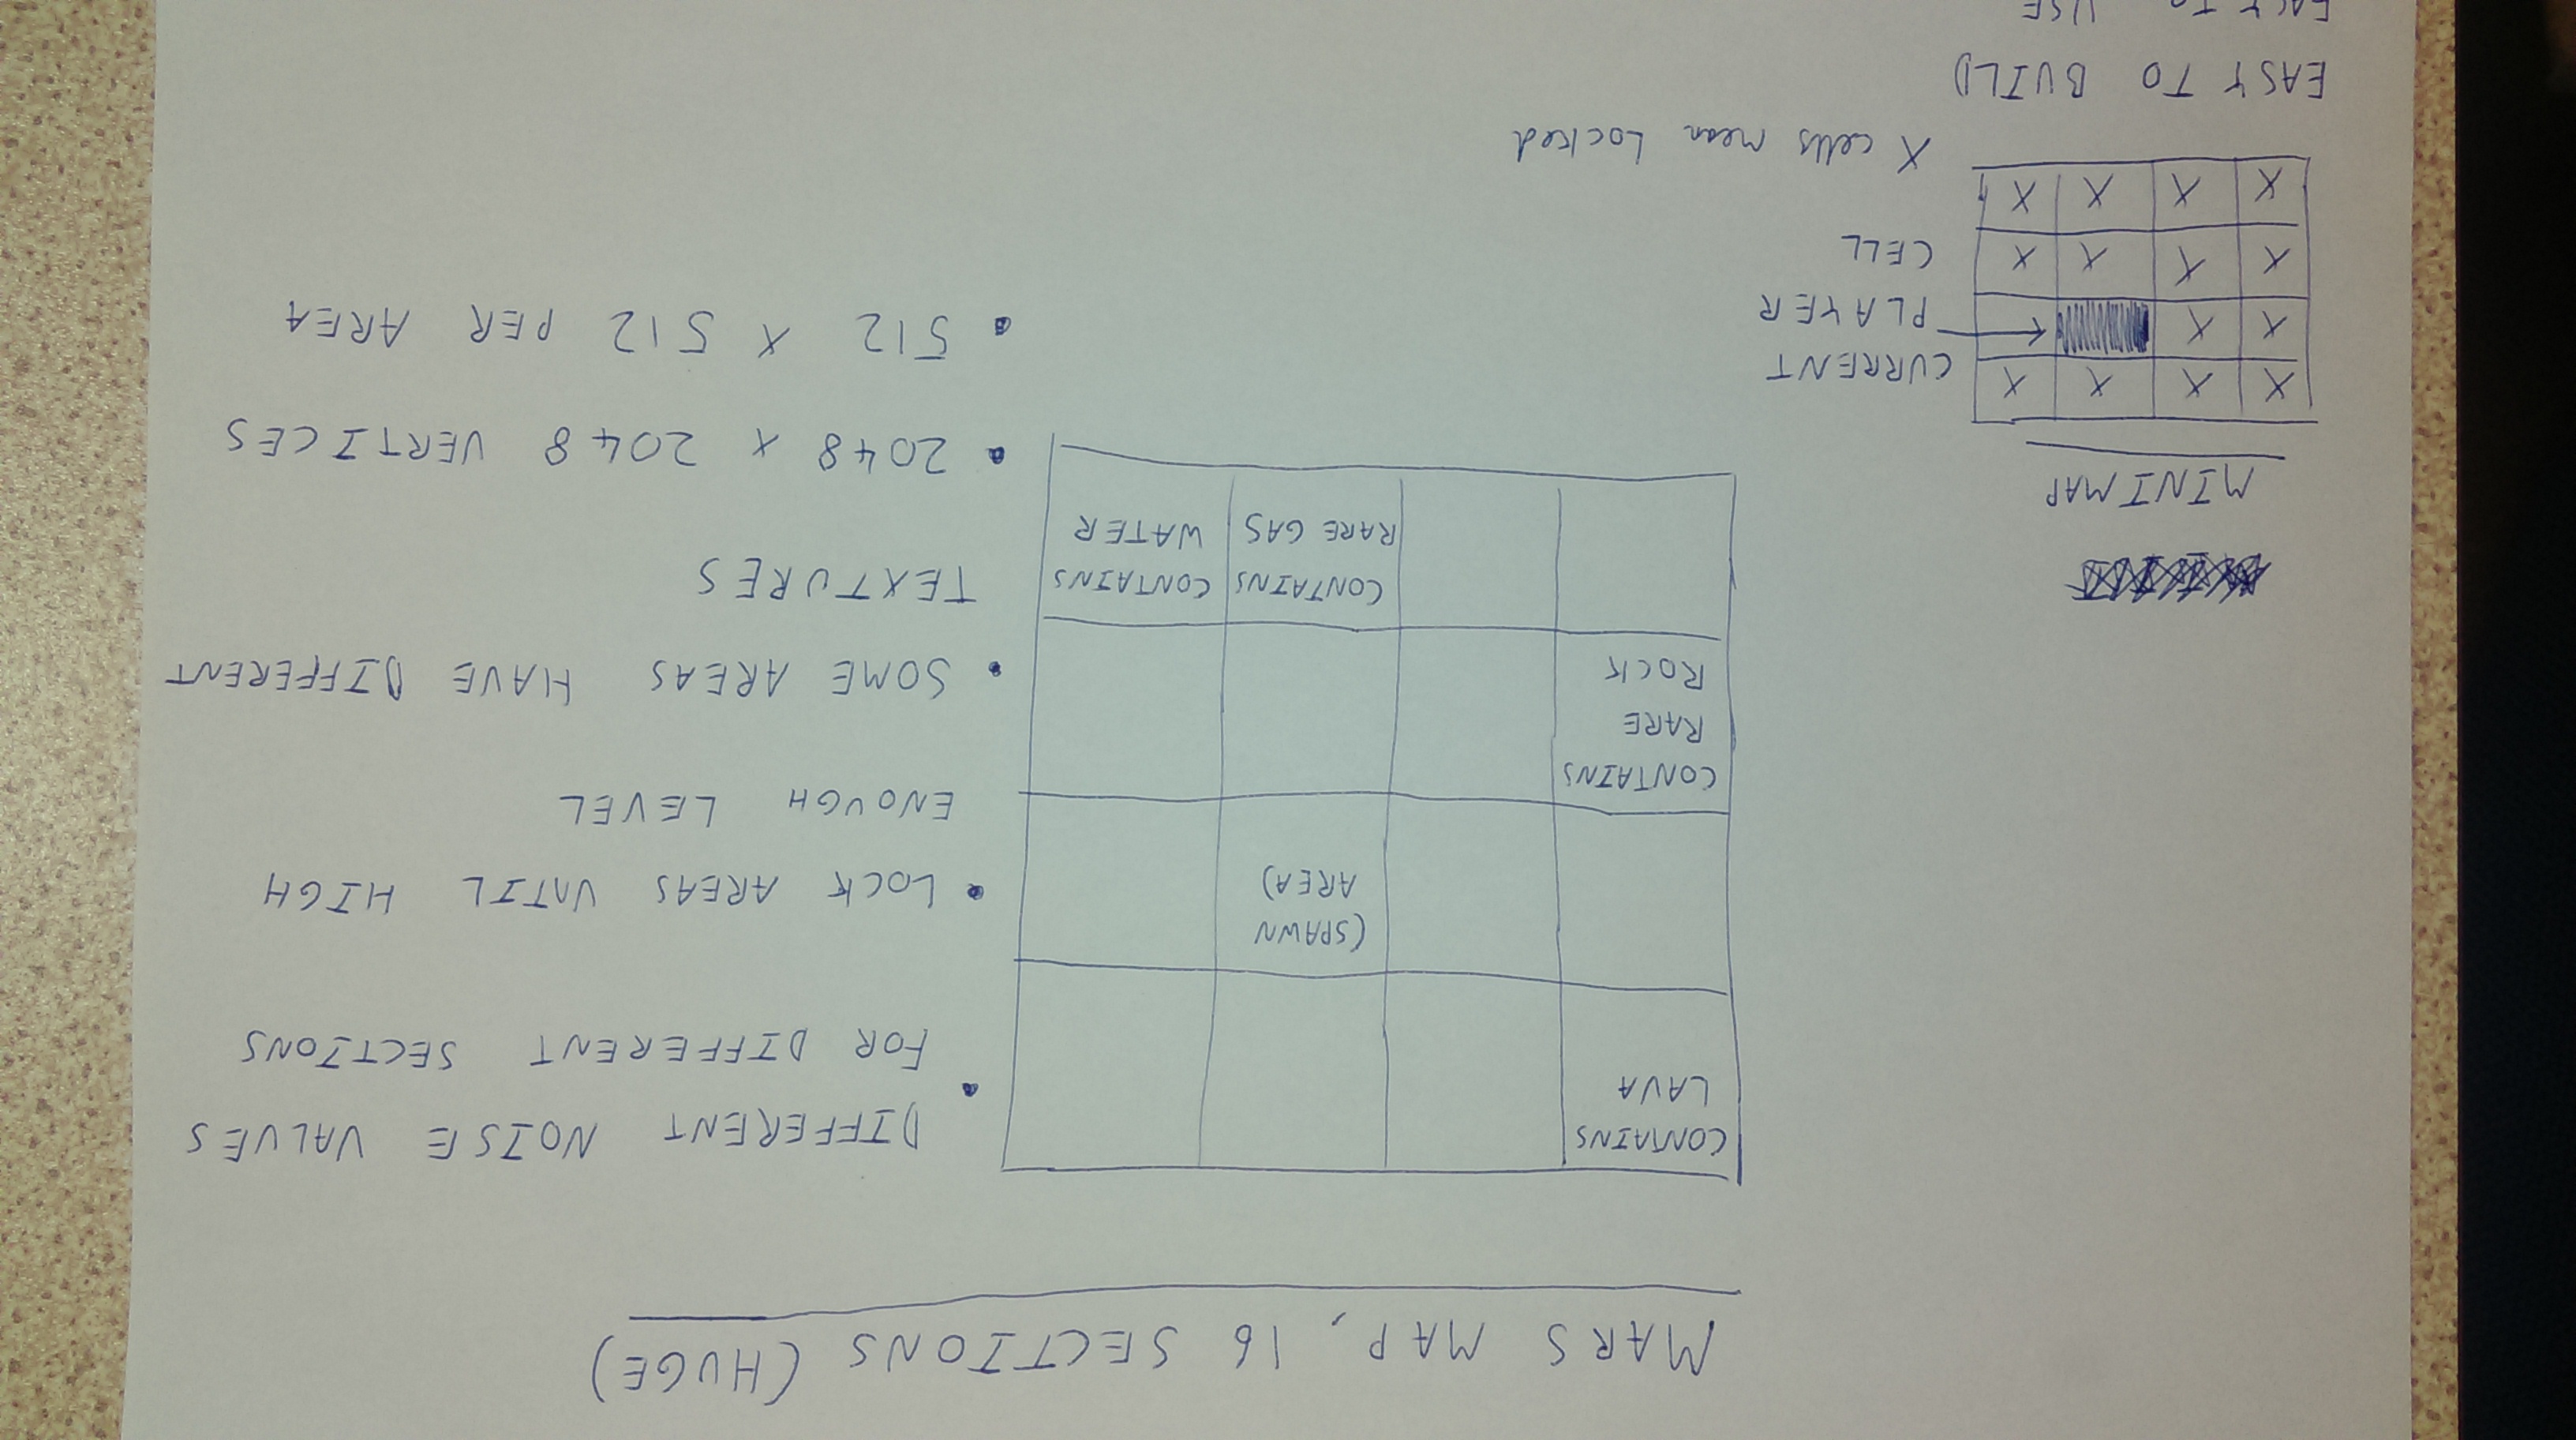 MARS MAP, 16 SECTIONS (HUGE)
CONTAINS
LAVA
(SPAWN
AREA)
CONTAINS
RARE
ROCK
CONTAINS
RARE GAS
CONTAINS
WATER
DIFFERENT NOISE VALUES
FOR DIFFERENT SECTIONS
LOCK AREAS UNTIL HIGH
ENOUGH LEVEL
SOME AREAS HAVE DIFFERENT
TEXTURES
2048 x 2048 VERTICES
512 X 512 PER AREA
MINIMAP
X X X X
X X
X X X X
X X X X
CURRENT
PLAYER
CELL
X cells mean Locked
EASY TO BUILD
EASY TO USE